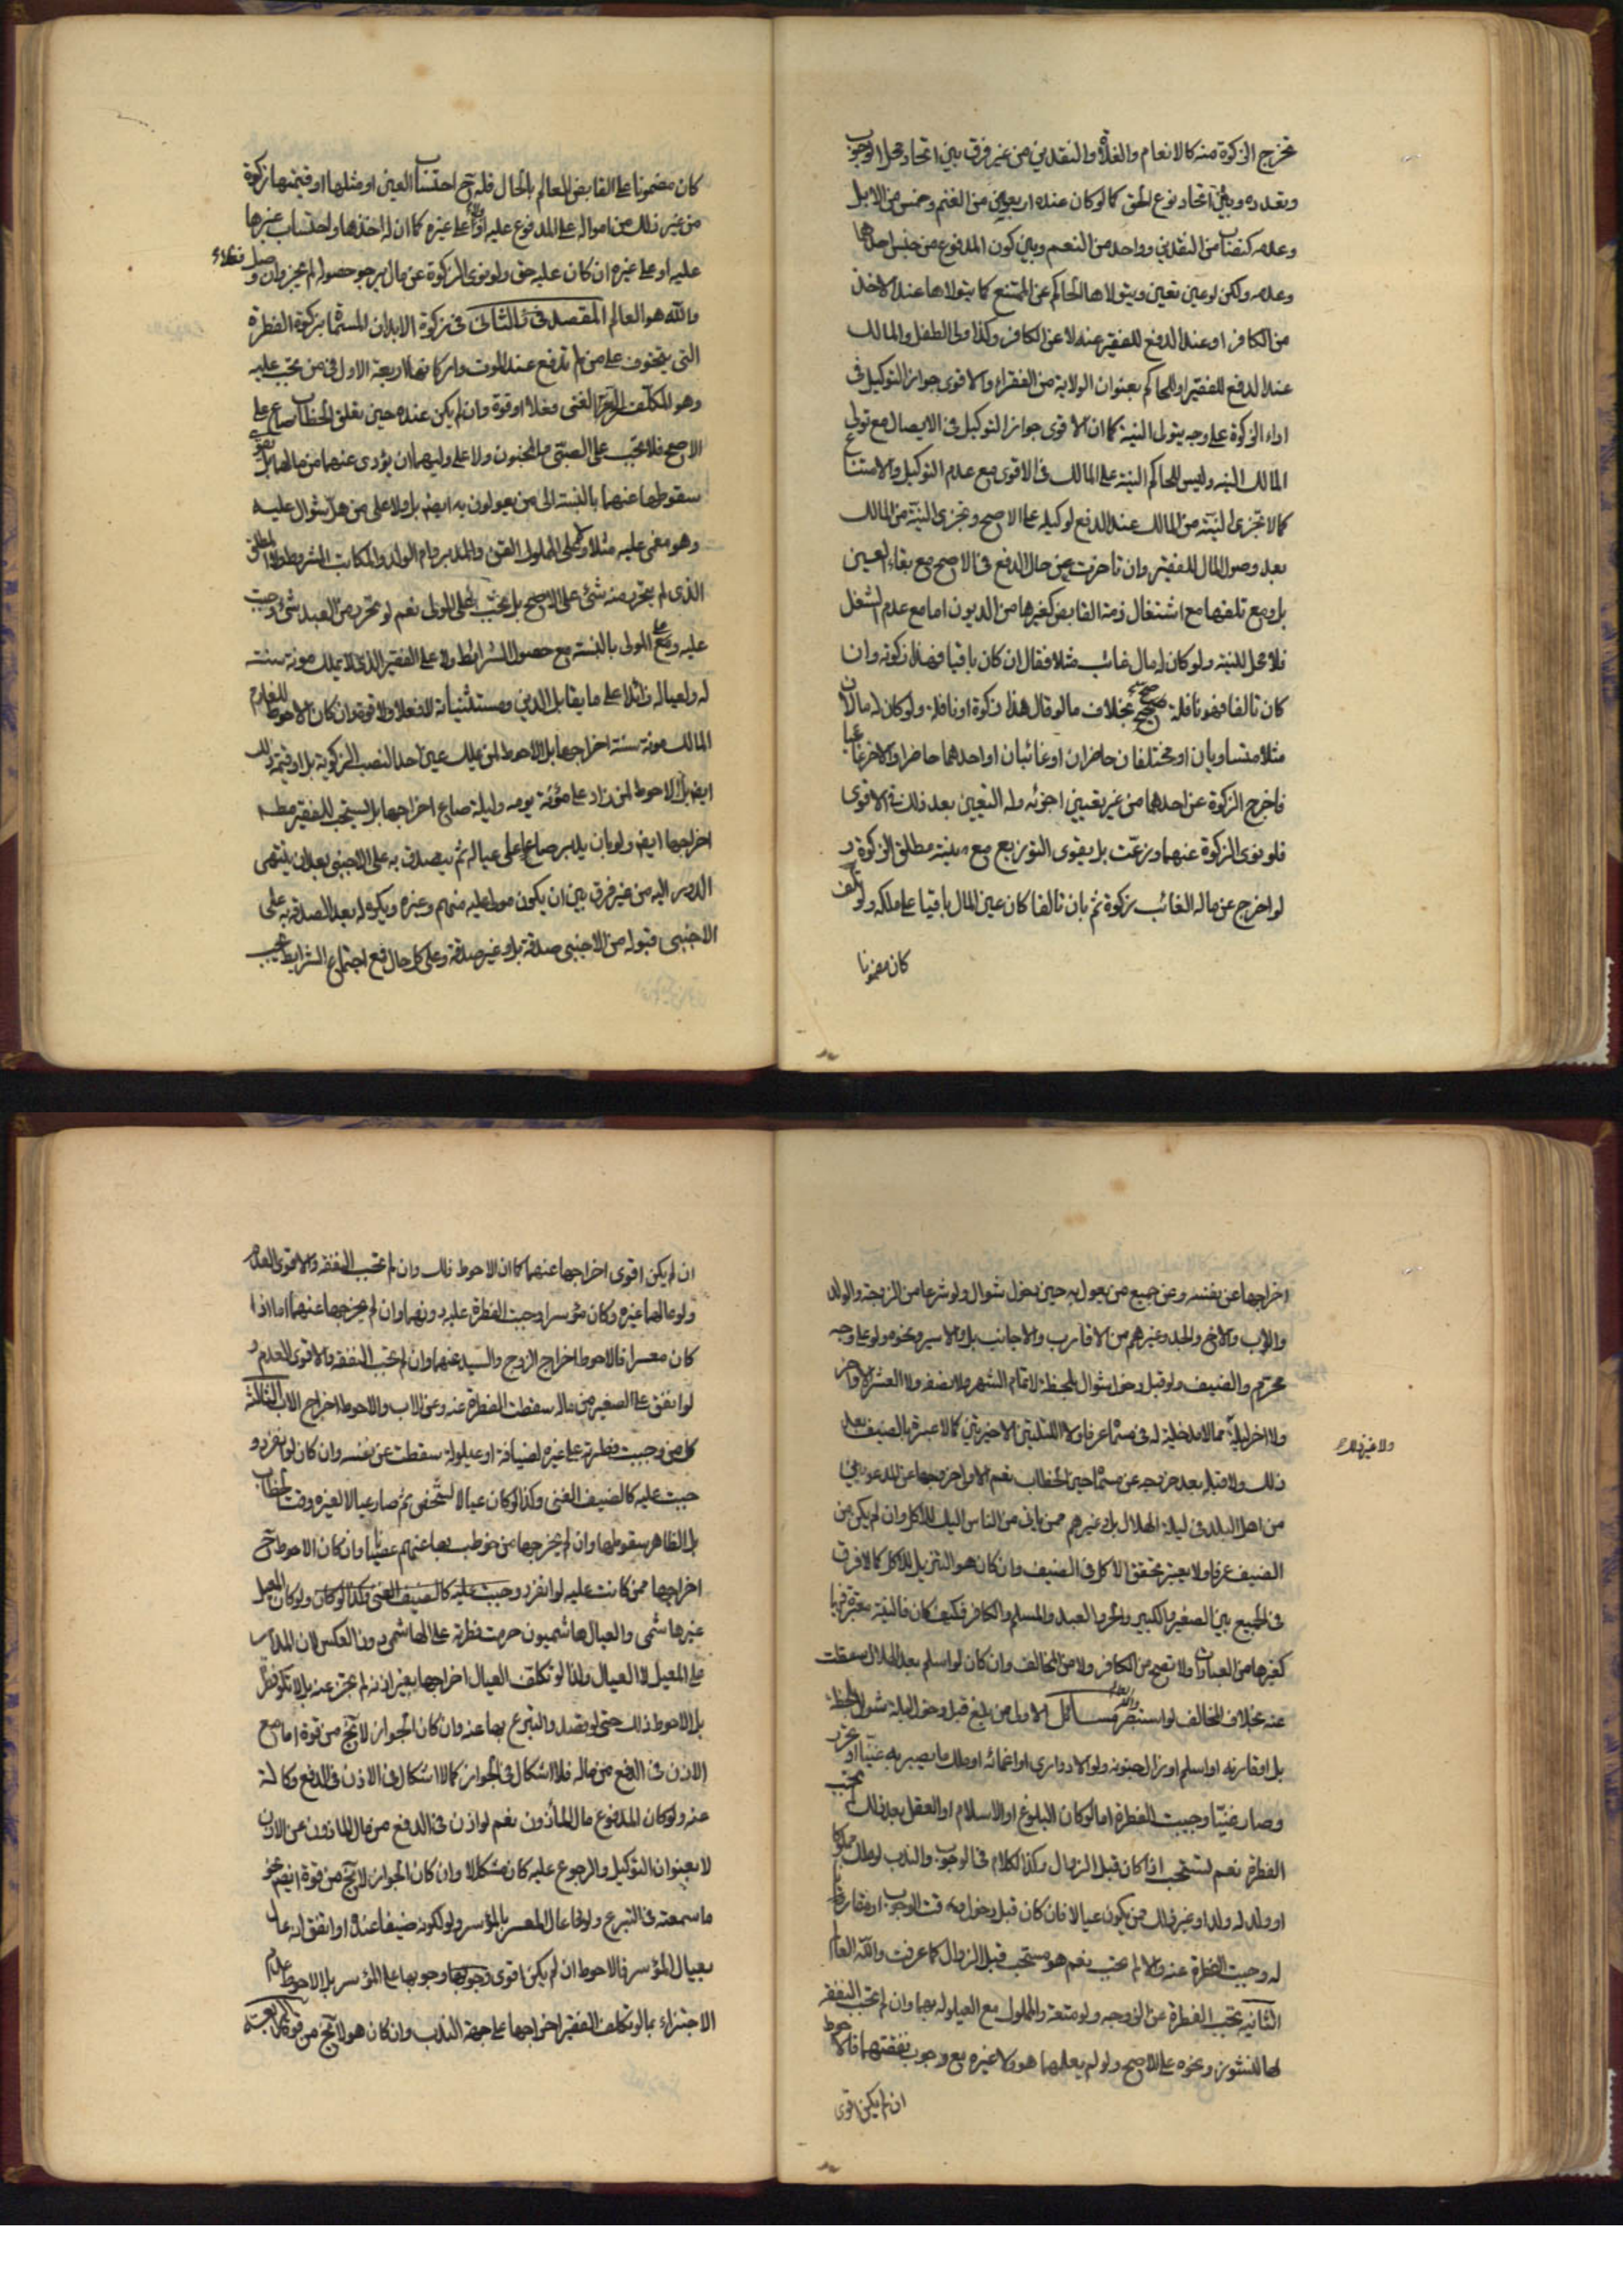 تخرج الزكوة منه كالانعام والغلاة والنقدين من غير فرق بين اتحاد محل الوجوب
وتعدده وبين اتحاد نوع الحق كما لو كان عنده اربعون من الغنم وخمس من الابل
وعدمه كنصاب من النقدين وواحد من النعم وبين كون المدفوع من جنس احدهما
وعدمه ولكن لو عين تعين ويتولاها الحاكم عن الممتنع كما يتولاها عند الاخذ
من الكافر او عند الدفع للفقير عنه لا عن الكافر وكذا ولى الطفل والمالك
عند الدفع للفقير او للحاكم بعنوان الولاية من الفقراء والاقوى جواز التوكيل فى
اداء الزكوة على وجه يتولى النية كما ان الاقوى جواز التوكيل فى الايصال مع تولى
المالك النيه وليس للحاكم النية على المالك فى الاقوى مع عدم التوكيل والامتناع
كما لا تجزى النية من المالك عند الدفع لوكيله على الاصح وتجزى النية من المالك
بعد وصول المال للفقير وان تأخرت عن حال الدفع فى الاصح مع بقاء العين
بل ومع تلفها مع اشتغال ذمة القابض كغيرها من الديون اما مع عدم الشغل
فلا محل للنية ولو كان له مال غائب مثلا فقال ان كان باقيا فهذا زكوته وان
كان تالفا فهو نافلة صح بخلاف ما لو قال هذا زكوة او نافلة ولو كان له مالان
مثلا متساويان او مختلفان حاضران او غائبان او احدهما حاضرا والاخر غائبا
فاخرج الزكوة عن احدهما من غير تعيين اجزئه وله التعيين بعد ذلك فى الاقوى
فلو نوى الزكوة عنهما وزعت بل يقوى التوزيع مع نية مطلق الزكوة و
لو اخرج عن ماله الغائب زكوة ثم بان تالفا كان عين المال باقيا على ملكه ولو تلف
كان مضمونا
كان مضمونا على القابض العالم بالحال فله ح احتساب العين او مثلها او قيمتها زكوة
من غير ذلك من امواله على المدفوع عليه او على غيره كما ان له اخذها واحتساب غيرها
عليه او على غيره ان كان عليه حق ولو نوى الزكوة عن مال يرجو حصوله لم يجز وان وصل
والله هو العالم المقصد الثانى فى زكوة الابدان المسماة بزكوة الفطرة
التى يتخوف على من لم تدفع عنه الموت واركانها اربعة الاول فى من تجب عليه
وهو المكلف الحر الغنى فعلا او قوة وان لم يكن عنده حين تعلق الخطاب صاع على
الاصح فلا تجب على الصبى والمجنون ولا على وليهما ان يؤدى عنهما من مالهما بل يقوى
سقوطها عنهما بالنسبة الى من يعولون به ايضا بل ولا على من هل شوال عليه
وهو مغمى عليه مثلا ولا على المملوك القن والمدبر وام الولد والمكاتب المشروط والمطلق
الذى لم يتحرر منه شئ على الاصح بل تجب على المولى نعم لو تحرر من العبد شئ وجبت
عليه وعلى المولى بالنسبة مع حصول الشرائط ولا على الفقير الذى لا يملك مونة سنته
له ولعياله زائدا على ما يقابل الدين ومستثنياته لا فعلا ولا قوة وان كان الاحوط للغارم
المالك مونة سنة اخراجها بل الاحوط لمن يملك عين احد النصب الزكوية بل او قيمة ذلك
ايضا بل الاحوط لمن زاد على مؤنة يومه وليلة صاع اخراجها بل يستحب للفقير مطلقا
اخراجها ايضا ولو بان يدير صاعا على عياله ثم يتصدق به على الاجنبى بعد ان ينتهى
الدور اليه من غير فرق بين ان يكون مولى عليه منهم وغيره ويكره له بعد الصدقه به على
الاجنبى قبوله من الاجنبى صدقة بل وغير صدقة وعلى كل حال فمع اجتماع الشرائط تجب
اخراجها عن نفسه وعن جميع من يعول به حين دخول شوال ولو شرعا من الزوجة والولد
والاب والاخ والجد وغيرهم من الاقارب والاجانب بل والاسير ونحوه ولو على وجه
محرم والضيف ولو قبل دخول شوال بلحظة لا تمام الشهر ولا نصفه ولا العشر الاواخر
ولا اخر ليلة مما لا مدخلية له فى مسماه عرفا ولا الليلتين الاخيرتين كما لا عبرة بالضيف بعد
ولا غير ذلك
ذلك ولا قبله بعد خروجه عن مسماه حين الخطاب نعم الاولى اخراجها عن المدعوين
من اهل البلد فى ليلة الهلال بل وغيرهم ممن يأتى من الناس اليك للاكل وان لم يكن من
الضيف عرفا ولا يعتبر تحقق الاكل فى الضيف وان كان هو التنزيل للاكل كما لا فرق
فى الجميع بين الصغير والكبير والحر والعبد والمسلم والكافر فكيف كان فالنية معتبرة فيها
كغيرها من العبادات ولا تصح من الكافر ولا من المخالف وان كان لو اسلم بعد الهلال سقطت
عنه بخلاف المخالف لو استبصر مسائل الاولى من بلغ قبل دخول ليلة شوال بلحظة
بل او قارنه او اسلم او زال جنونه ولو الادوارى او اغمائه او ملك ما يصير به غنيا او تحرر
وصار غنيا وجبت الفطرة اما لو كان البلوغ او الاسلام او العقل بعد ذلك لم تجب
الفطرة نعم تستحب اذا كان قبل الزوال وكذا الكلام فى الوجوب والندب لو ملك مملوكا
او ولد له ولد او غير ذلك ممن يكون عيالا فان كان قبل دخول وقت الوجوب او مقارنا
له وجبت الفطرة عنه والا لم تجب نعم هو مستحب قبل الزوال كما عرفت والله العالم
الثانية تجب الفطرة عن الزوجة ولو متعة والمملوك مع العيلولة بهما وان لم تجب النفقه
لها لنشوز ونحوه على الاصح ولو لم يعلهما هو ولا غيره مع وجوب نفقتهما فالاحوط
ان لم يكن اقوى
ان لم يكن اقوى اخراجها عنهما كما ان الاحوط ذلك وان لم تجب النفقه والاقوى العدم
ولو عالهما غيره وكان مؤسرا وجبت الفطرة عليه دونهما وان لم يخرجها عنهما اما اذا
كان معسرا فالاحوط اخراج الزوج والسيد عنهما وان لم تجب النفقه والاقوى العدم و
لو انفق على الصغير من ماله سقطت الفطرة عنه وعن الاب والاحوط اخراج الاب الثالثة
كل من وجبت فطرته على غيره لضيافة او عيلولة سقطت عن نفسه وان كان لو انفرد و
جبت عليه كالضيف الغنى وكذا لو كان عيالا لشخص ثم صار عيالا لغيره وقت الخطاب
بل الظاهر سقوطها وان لم يخرجها من خوطب بها عنهم عصيانا وان كان الاحوط ح
اخراجها ممن كانت عليه لو انفرد وجبت عليه كالضيف الغنى وكذا لو كان ولو كان المعيل
غير هاشمى والعيال هاشميون حرمت فطرته على الهاشمى دون العكس لان المدار
على المعيل لا العيال ولذا لو تكلف العيال اخراجها بغير اذنه لم تجز عنه
بل الاحوط ذلك حتى لو قصد والتبرع بها عنه وان كان الجواز لا يخ من قوة اما مع
الاذن فى الدفع من ماله فلا اشكال فى الجواز كما لا اشكال فى الاذن فى الدفع وكالة
عنه ولو كان المدفوع مال المأذون نعم لو اذن فى الدفع من مال المأذون عن الاذن
لا بعنوان التوكيل والرجوع عليه كان مشكلا وان كان الجواز لا يخ من قوة ايضا نحو
ما سمعته فى التبرع ولو عال المعسر بالمؤسر ولو لكونه ضيفا عنده او اتفق انه عال
بعيال المؤسر فالاحوط ان لم يكن اقوى وجوبها على المؤسر بل الاحوط عدم
الاجتزاء بما لو تكلف الفقير اخراجها على جهة الندب وان كان هو لا يخ من قوة الرابعة